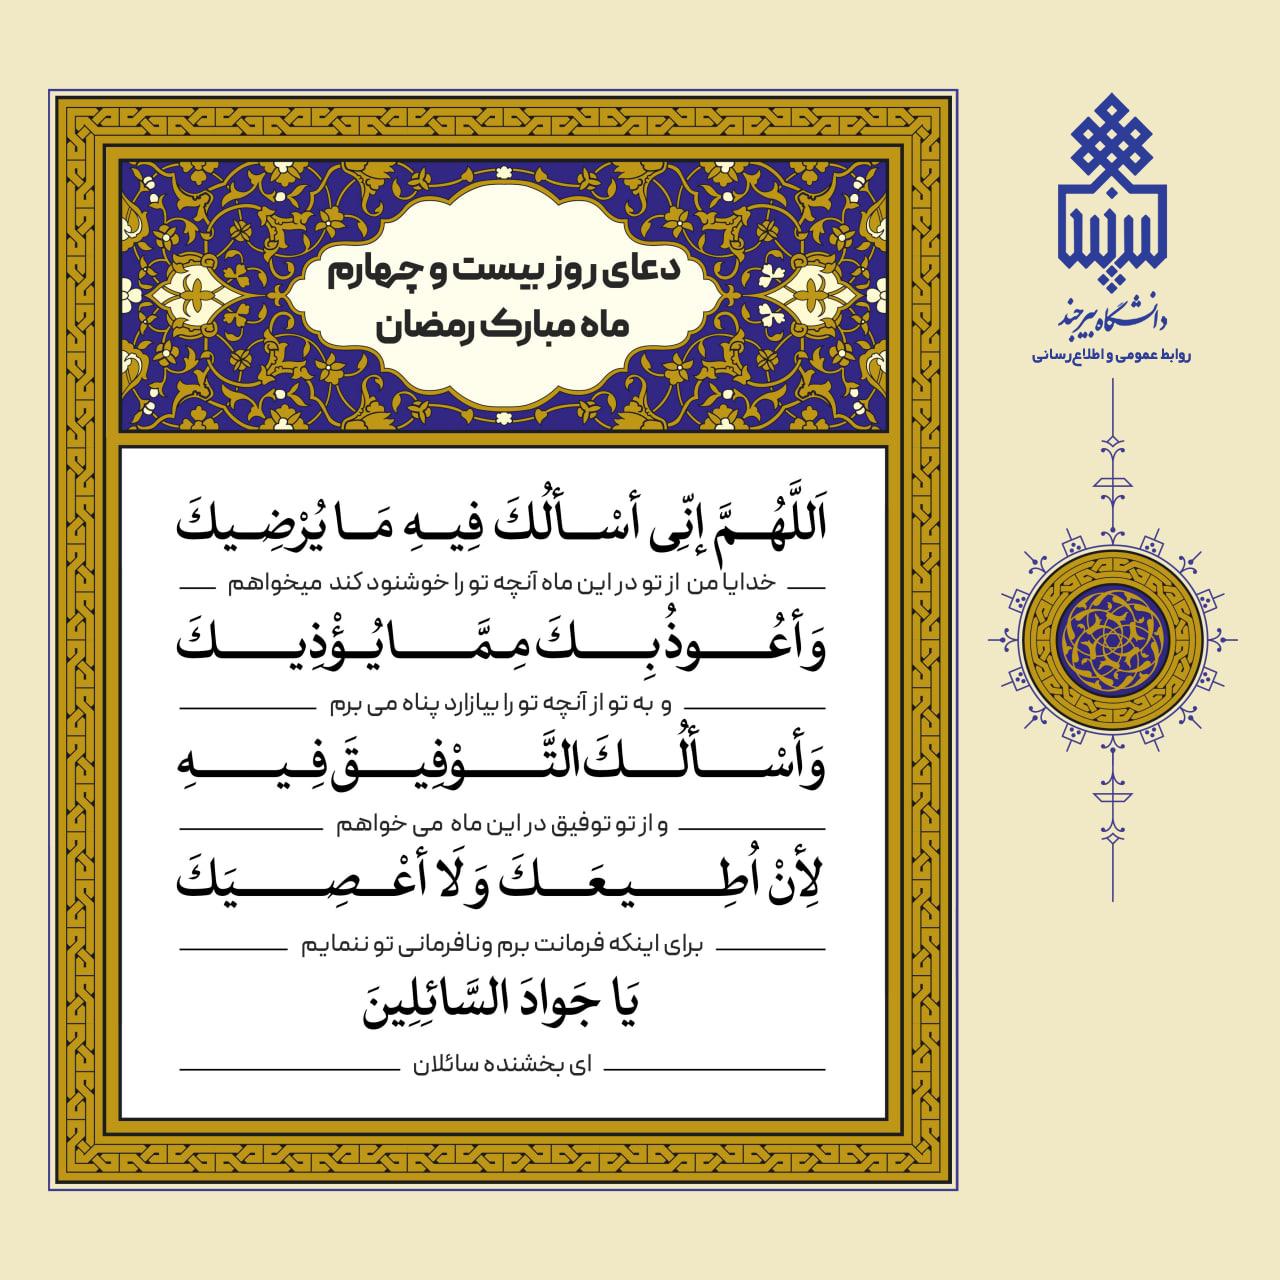 دعای روز بیست و چهارم
ماه مبارک رمضان
اَللَّهُمَّ إنِّی أسْألُكَ فِیهِ مَا یُرْضِیكَ
خدایا من از تو در این ماه آنچه تو را خوشنود کند میخواهم
وَأعُوذُ بِكَ مِمَّا یُؤْذِیكَ
و به تو از آنچه تو را بیازارد پناه می برم
وَأسْألُكَ التَّوْفِیقَ فِیهِ
و از تو توفیق در این ماه می خواهم
لِأنْ اُطِیعَكَ وَلَا أعْصِیَكَ
برای اینکه فرمانت برم ونافرمانی تو ننمایم
یَا جَوادَ السَّائِلِینَ
ای بخشنده سائلان
دانشگاه بیرجند
روابط عمومی و اطلاع‌رسانی